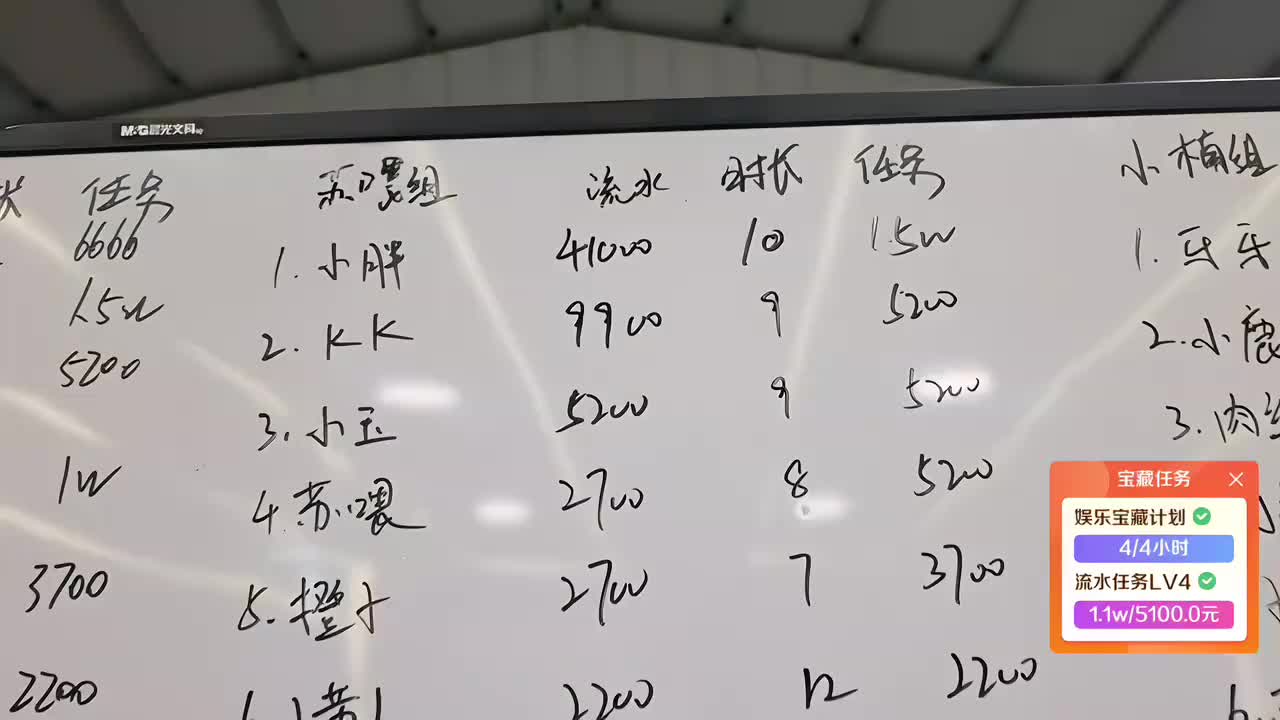 M&G晨光文具
任务 苏喂组 流水 时长 任务 小楠组
6666 1.小胖 41000 10 1.5w 1.牙牙
1.5w 2.KK 9900 9 5200 2.小鹿
5200 3.小玉 5200 9 5200 3.肉丝
1w 4.苏喂 2700 8 5200
3700 5.橙子 2700 7 3700
2200 2200 12 2200
宝藏任务
娱乐宝藏计划
4/4小时
流水任务LV4
1.1w/5100.0元